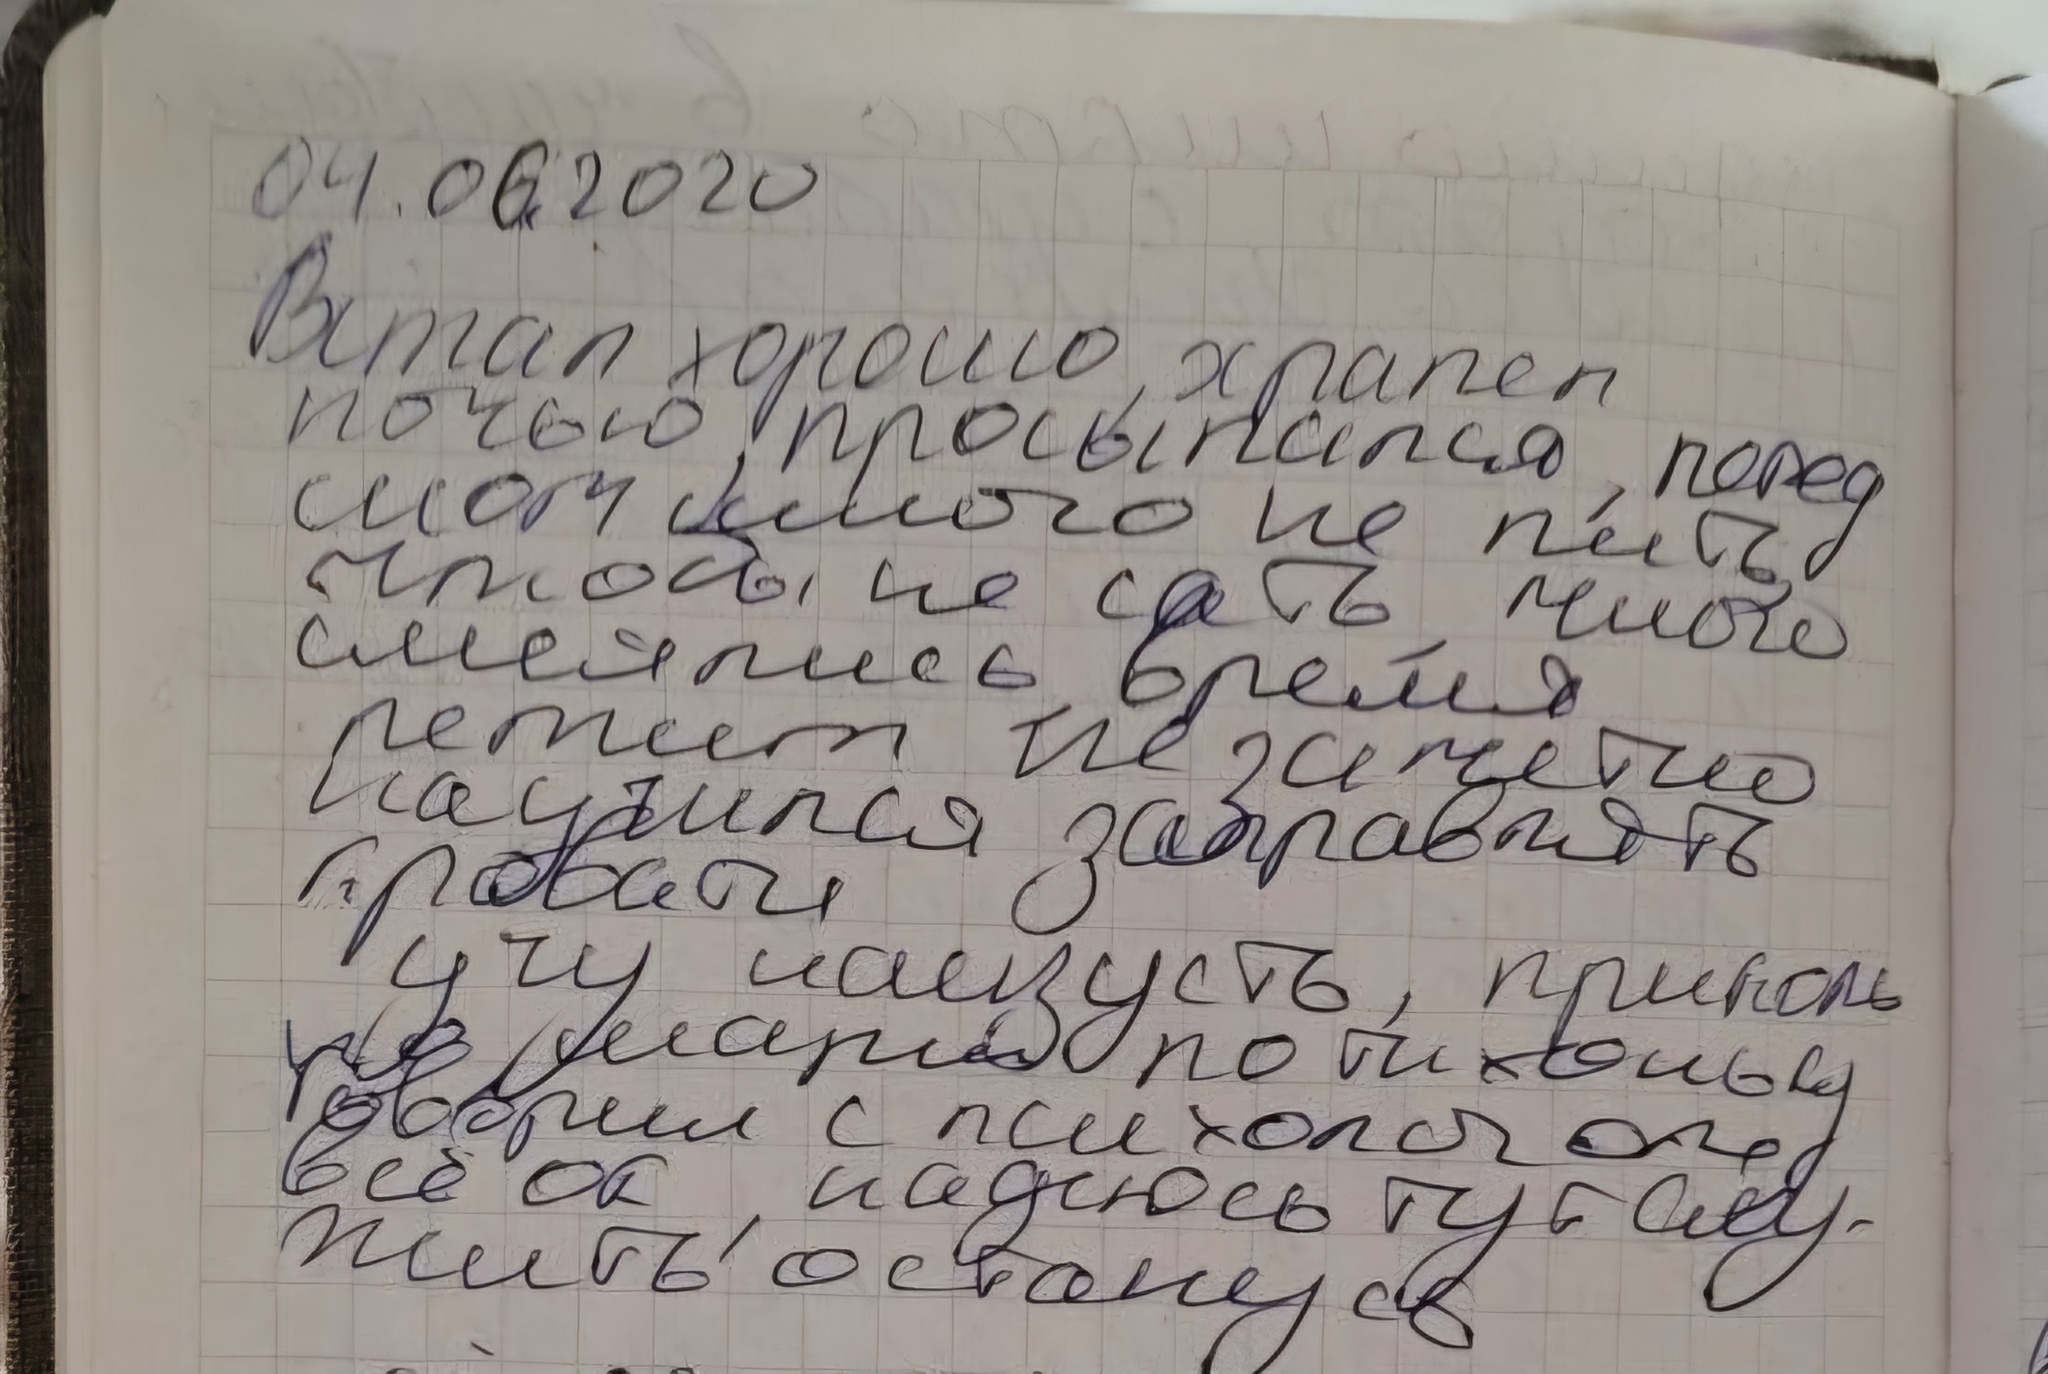 04.06.2020
Встал хорошо, храпел
ночью, просыпался, перед
сном много не пить
чтобы не сать, много
смеялись, время
летит незаметно
научился заправлять
кровати
учу наизусть, приколы
про марш потихоньку
говорил с психологом,
всё ок, надеюсь тут слу-
жить останусь